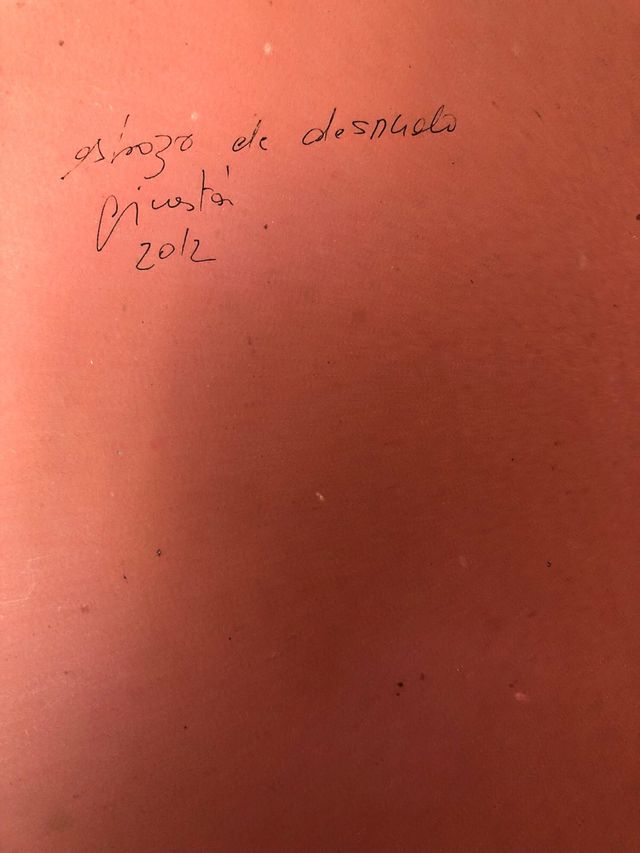 esbozo de desnudo
2012